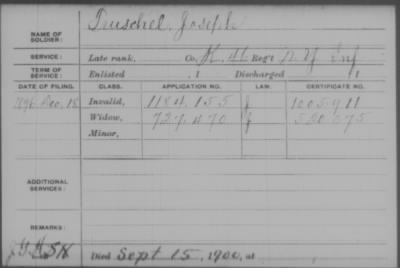 NAME OF SOLDIER: Truschel, Joseph
SERVICE: Late rank, Co. K, 46 Reg't N.Y. Inf
TERM OF SERVICE: Enlisted , 1 Discharged , 1
DATE OF FILING. CLASS. APPLICATION NO. LAW. CERTIFICATE NO.
1896 Dec. 18 Invalid, 1184,155 1005911
Widow, 727,470
Minor,
ADDITIONAL SERVICES:
REMARKS:
Died Sept 15, 1900, at